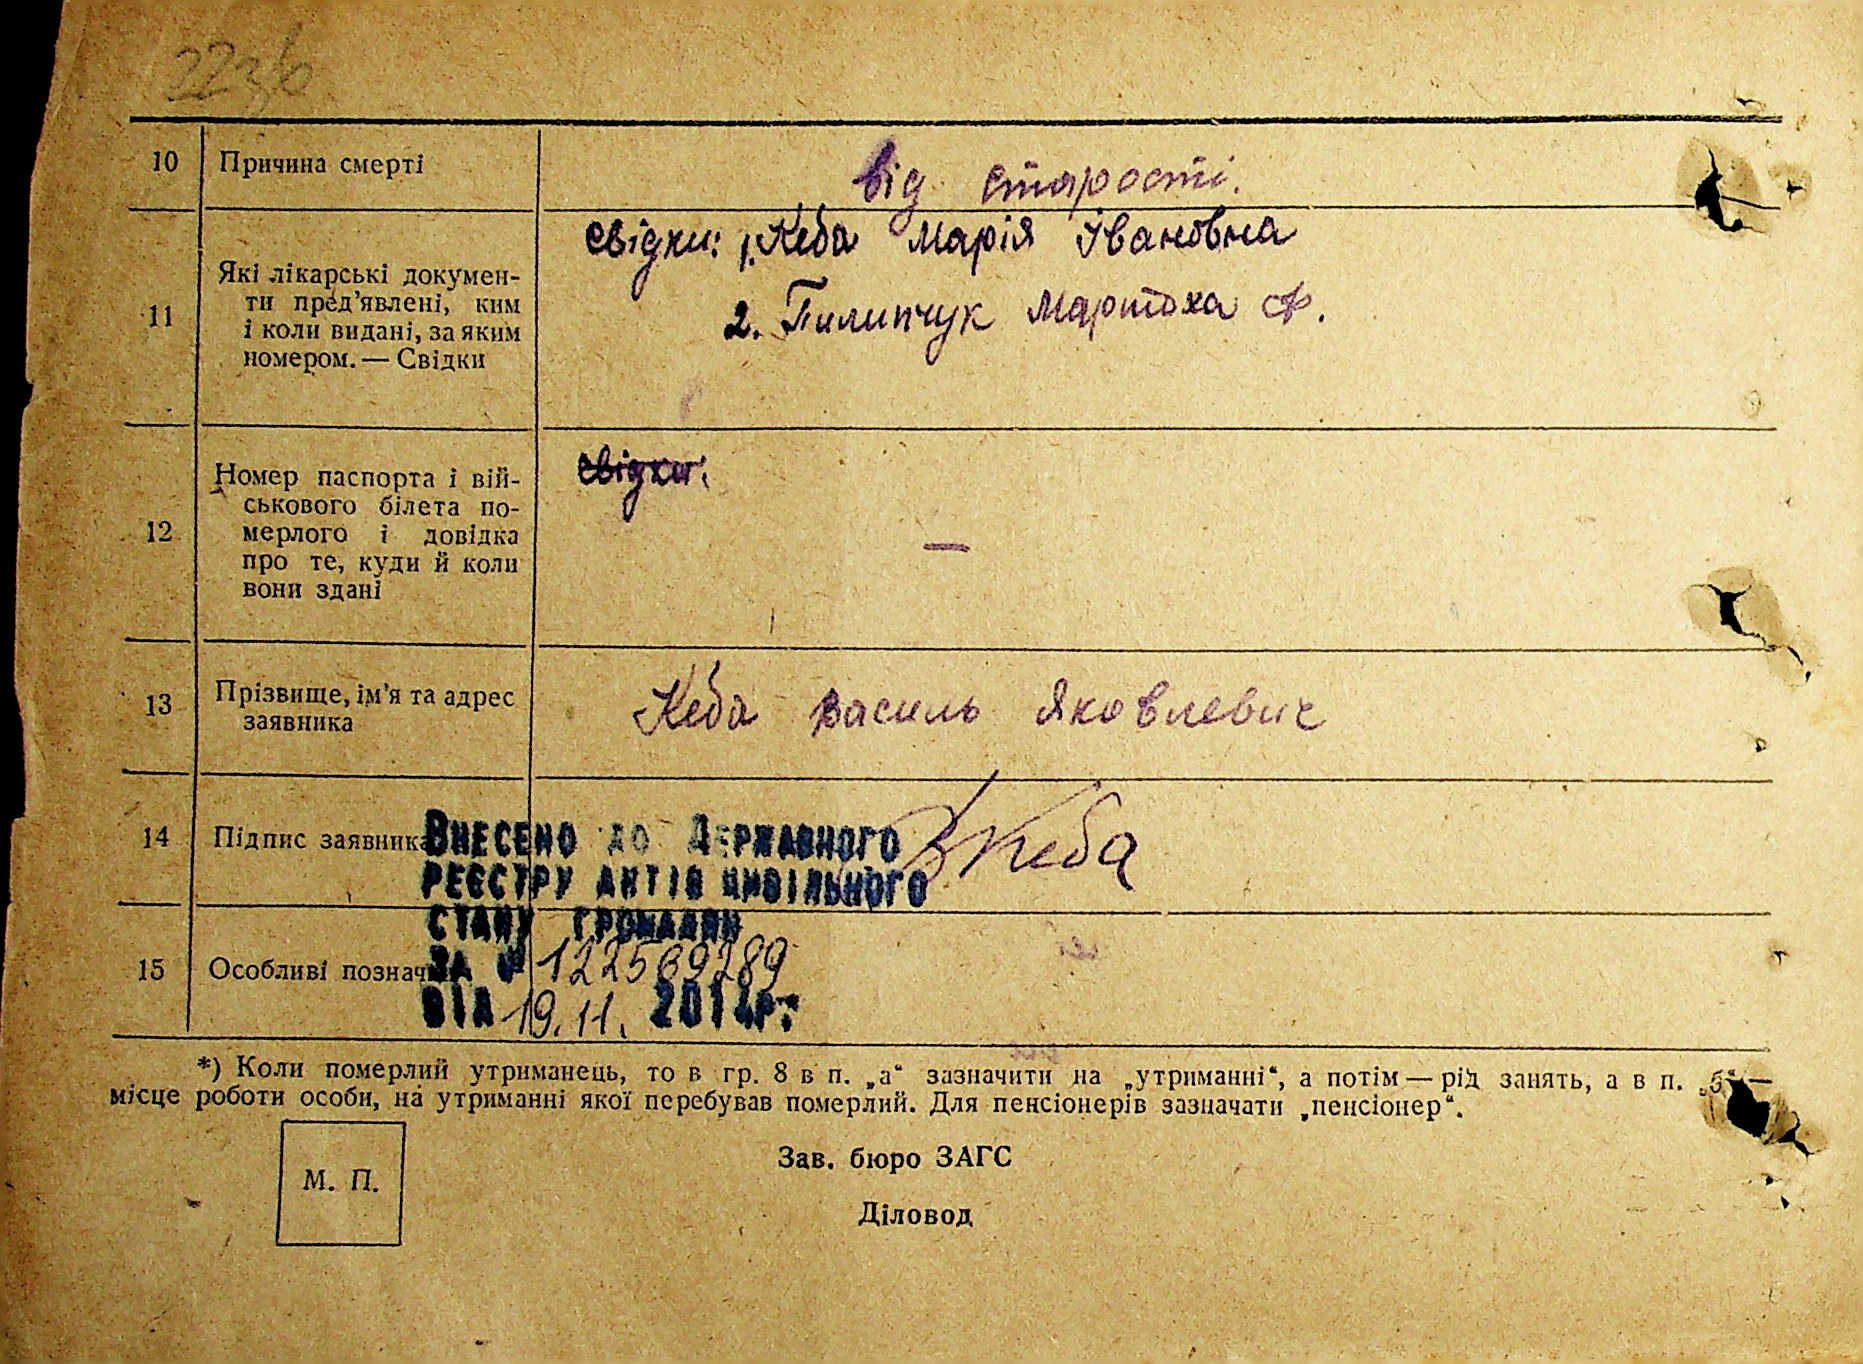 223б
10 Причина смерті від старості.
11 Які лікарські докумен-
ти пред'явлені, ким
і коли видані, за яким
номером. — Свідки
свідки: 1. Кеба Марія Івановна
2. Пилипчук Мартоха Ф.
12 Номер паспорта і вій-
ськового білета по-
мерлого і довідка
про те, куди й коли
вони здані
свідки:
—
13 Прізвище, ім'я та адрес
заявника
Кеба Василь Яковлевич
14 Підпис заявника Кеба
15 Особливі познач
Внесено до Державного
реєстру актів цивільного
стану громадян
за № 122569289
від 19.11. 2014р.
*) Коли померлий утриманець, то в гр. 8 в п. „а“ зазначити на „утриманні“, а потім — рід занять, а в п. „б“ —
місце роботи особи, на утриманні якої перебував померлий. Для пенсіонерів зазначати „пенсіонер“.
Зав. бюро ЗАГС
М. П.
Діловод